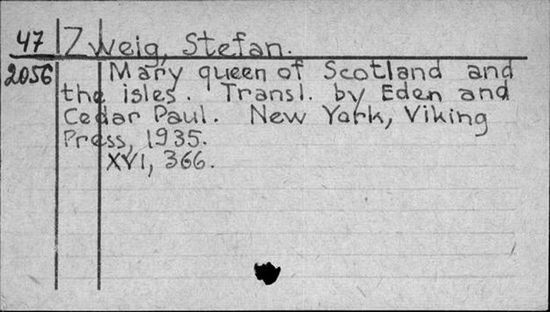 47 Zweig, Stefan.
2056 Mary queen of Scotland and
the isles. Transl. by Eden and
Cedar Paul. New York, Viking
Press, 1935.
XVI, 366.